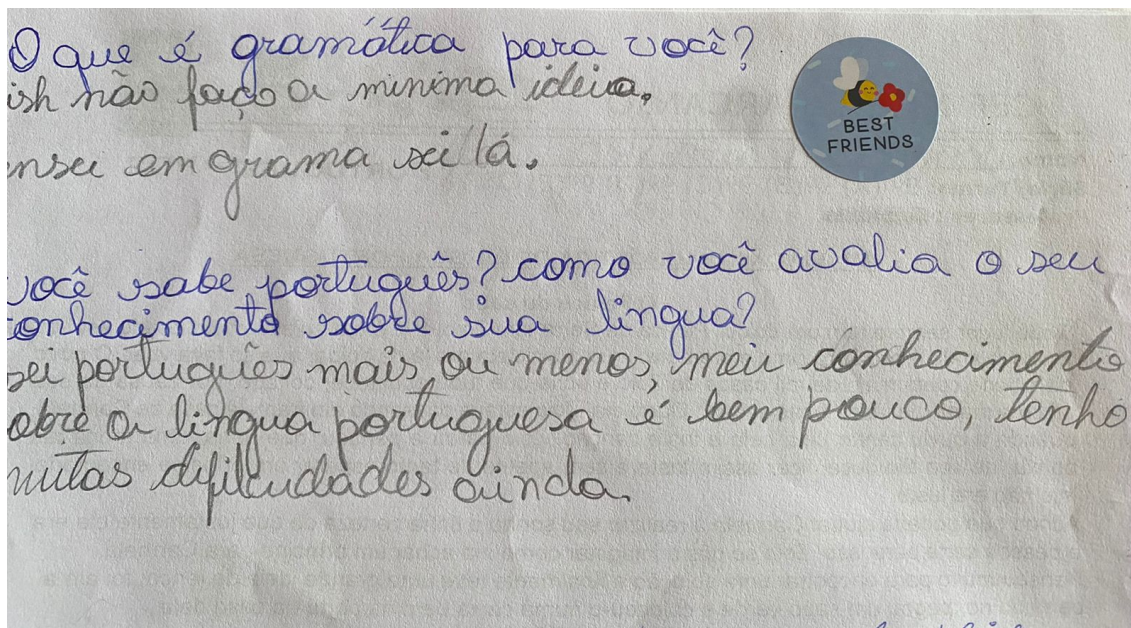 O que é gramática para você?
ish não faço a minima ideia.
BEST
FRIENDS
nsei em grama sei lá.
você sabe português? como você avalia o seu
conhecimento sobre sua língua?
sei português mais ou menos, meu conhecimento
obre a língua portuguesa é bem pouco, tenho
muitas dificudades ainda.